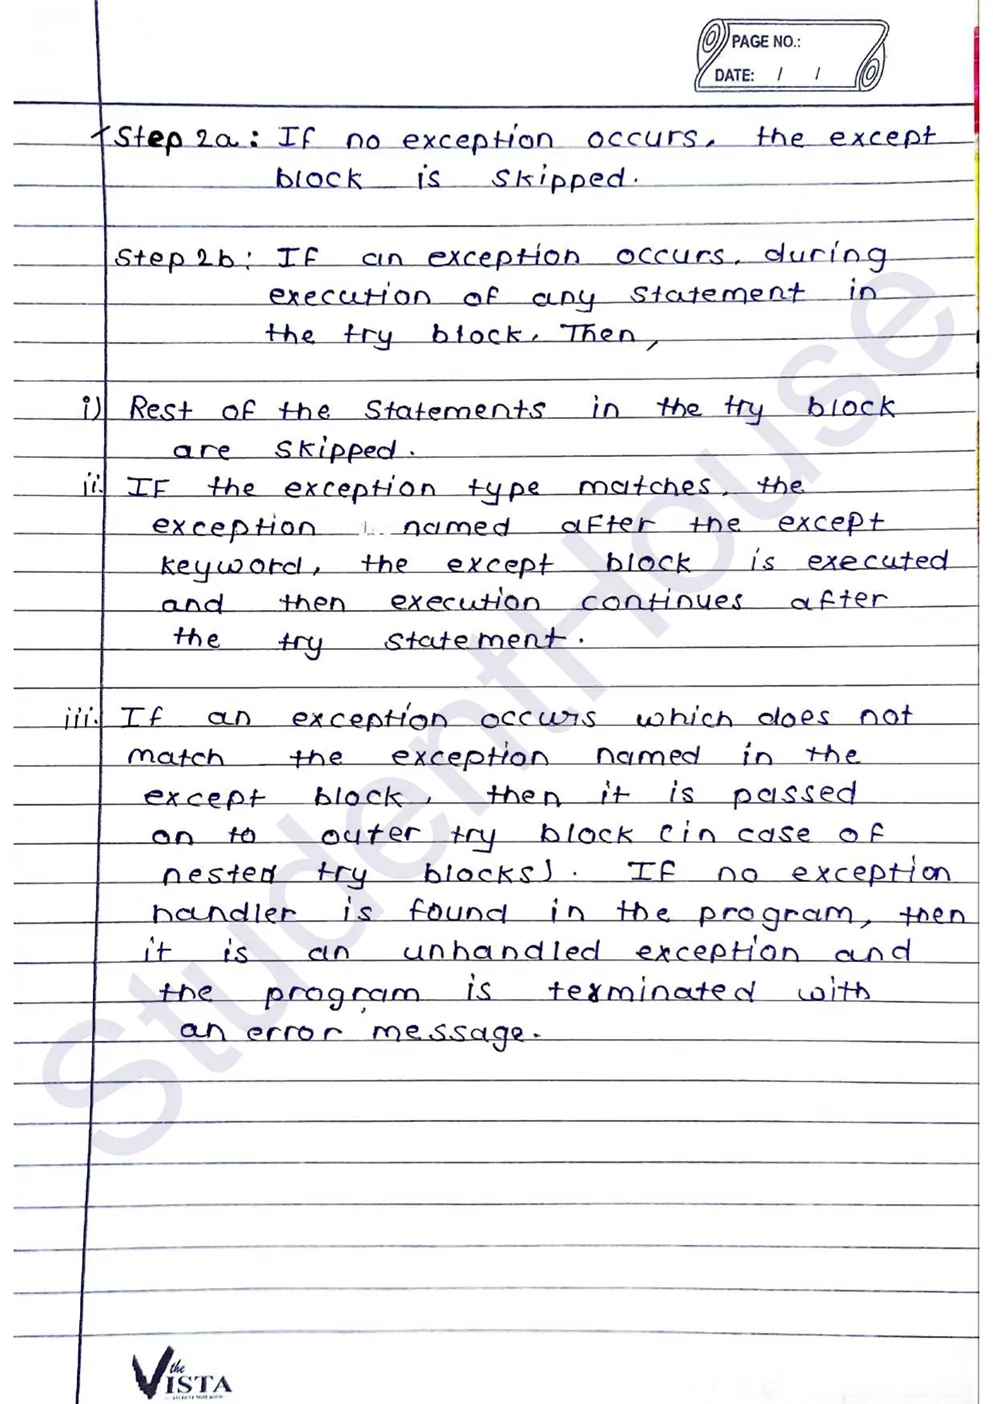 PAGE NO.:
DATE: / /
Step 2a: If no exception occurs, the except
block is skipped.
Step 2b: If an exception occurs, during
execution of any statement in
the try block. Then,
i) Rest of the statements in the try block
are skipped.
ii. If the exception type matches, the
exception named after the except
keyword, the except block is executed
and then execution continues after
the try statement.
iii. If an exception occurs which does not
match the exception named in the
except block, then it is passed
on to outer try block (in case of
nested try blocks). If no exception
handler is found in the program, then
it is an unhandled exception and
the program is terminated with
an error message.
StudentHouse
the
VISTA